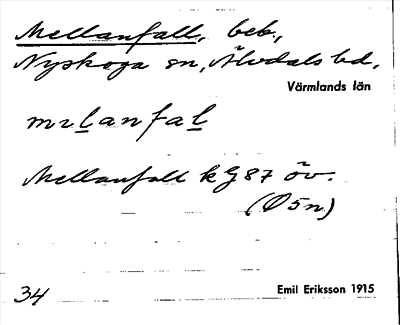 Mellanfall, beb.,
Nyskoga sn, Älvdals hd,
Värmlands län
mɩlanfal
Mellanfall k G 87 öv.
(Ö 5 n)
34
Emil Eriksson 1915